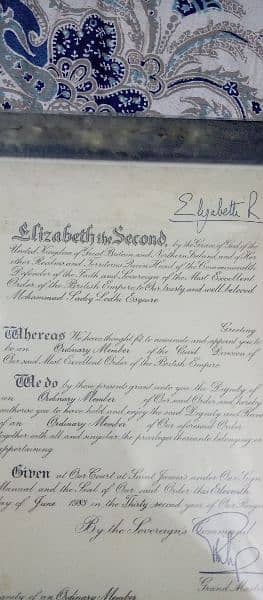 Elizabeth R
Elizabeth the Second, by the Grace of God of the
United Kingdom of Great Britain and Northern Ireland and of Her
other Realms and Territories Queen, Head of the Commonwealth,
Defender of the Faith and Sovereign of the Most Excellent
Order of the British Empire to Our trusty and well beloved
Mohammad Esquire
Greeting
Whereas We have thought fit to nominate and appoint you to
be an Ordinary Member of the Civil Division of
Our said Most Excellent Order of the British Empire
We do by these presents grant unto you the Dignity of
an Ordinary Member of Our said Order and hereby
authorise you to have hold and enjoy the said Dignity and Rank
of an Ordinary Member of Our aforesaid Order
together with all and singular the privileges thereunto belonging or
appertaining
Given at Our Court at Saint James's under Our Sign
Manual and the Seal of Our said Order this Eleventh
day of June in the Thirty second year of Our Reign
By the Sovereign's Command
Grand Master
of an Ordinary Member